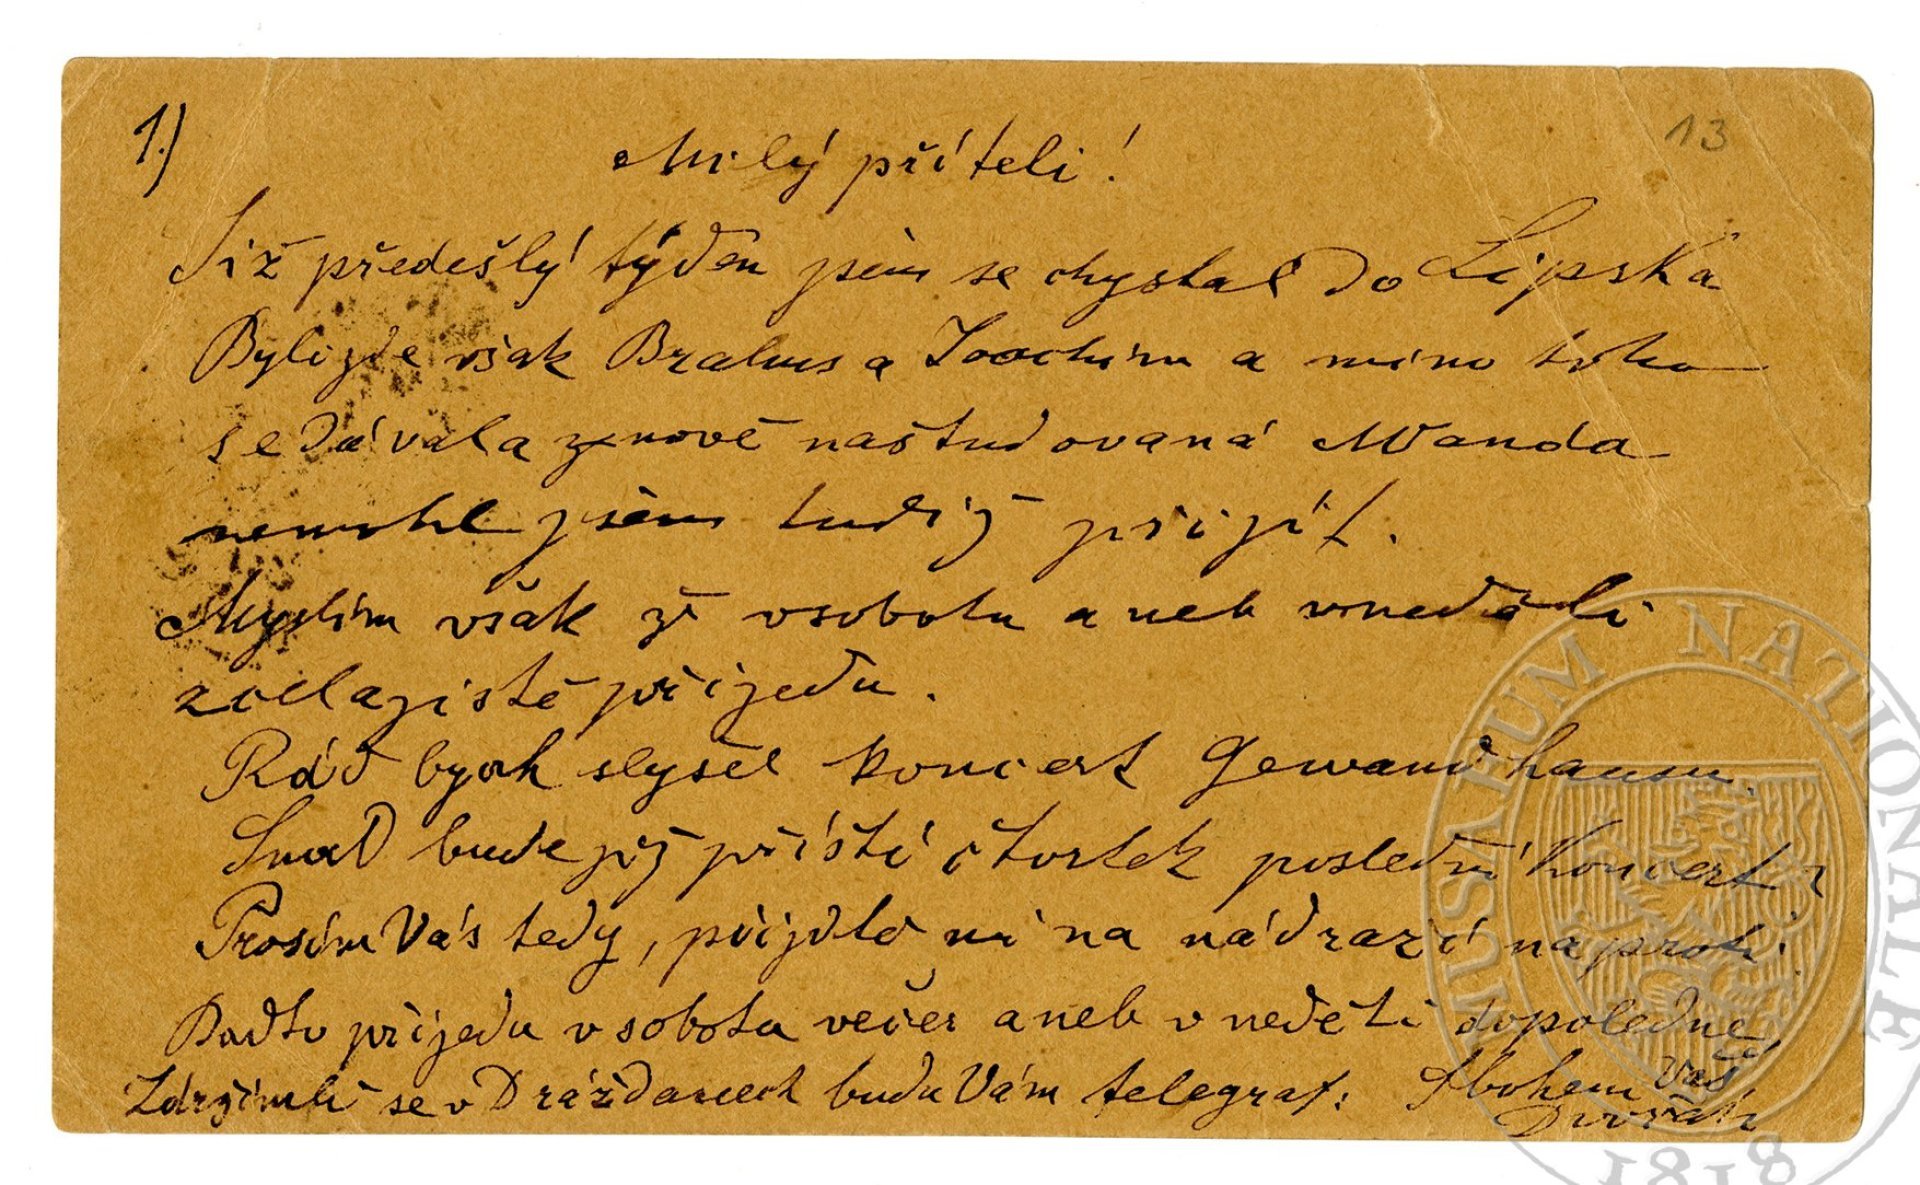 1.)
13
Milý příteli!
Již předešlý týden jsem se chystal do Lipska
Byli zde však Brahms a Joachim a mimo toho
se dávala znově naštudovaná Wanda
nemohl jsem tudíž přijít.
Myslím však že v sobotu aneb v neděli
zcela jistě přijedu.
Rád bych slyšel koncert Gewandhausu.
Snad bude již příští čtvrtek poslední koncert?
Prosím Vás tedy, přijďte mi na nádraží naproti.
Buďto přijedu v sobotu večer aneb v neděli dopoledne
Zdržímli se v Drážďanech budu Vám telegraf: S bohem Váš
Dvořák
MUSAEUM NATIONALE
1818